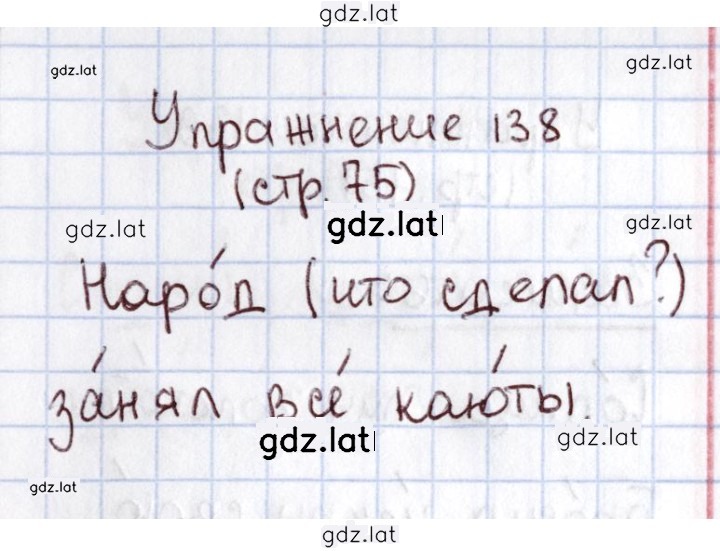 gdz.lat
gdz.lat
gdz.lat
Упражнение 138
(стр. 75)
gdz.lat
gdz.lat
gdz.lat
Наро́д (что сделал?)
за́нял все́ каю́ты.
gdz.lat
gdz.lat
gdz.lat
gdz.lat